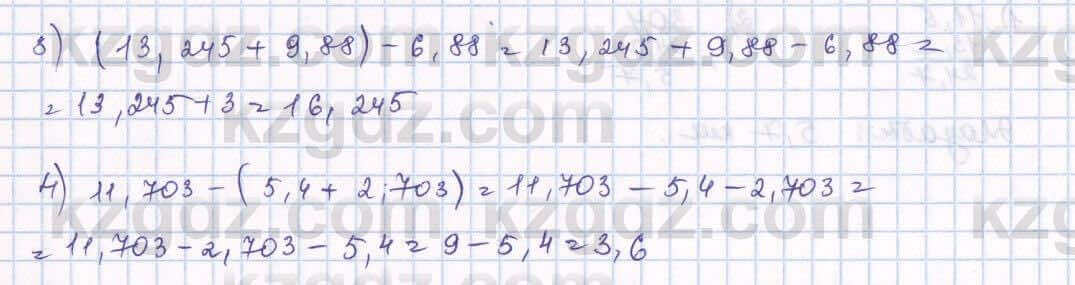 3) (13,245 + 9,88) - 6,88 = 13,245 + 9,88 - 6,88 =
= 13,245 + 3 = 16,245
4) 11,703 - (5,4 + 2,703) = 11,703 - 5,4 - 2,703 =
= 11,703 - 2,703 - 5,4 = 9 - 5,4 = 3,6
kzgdz.com